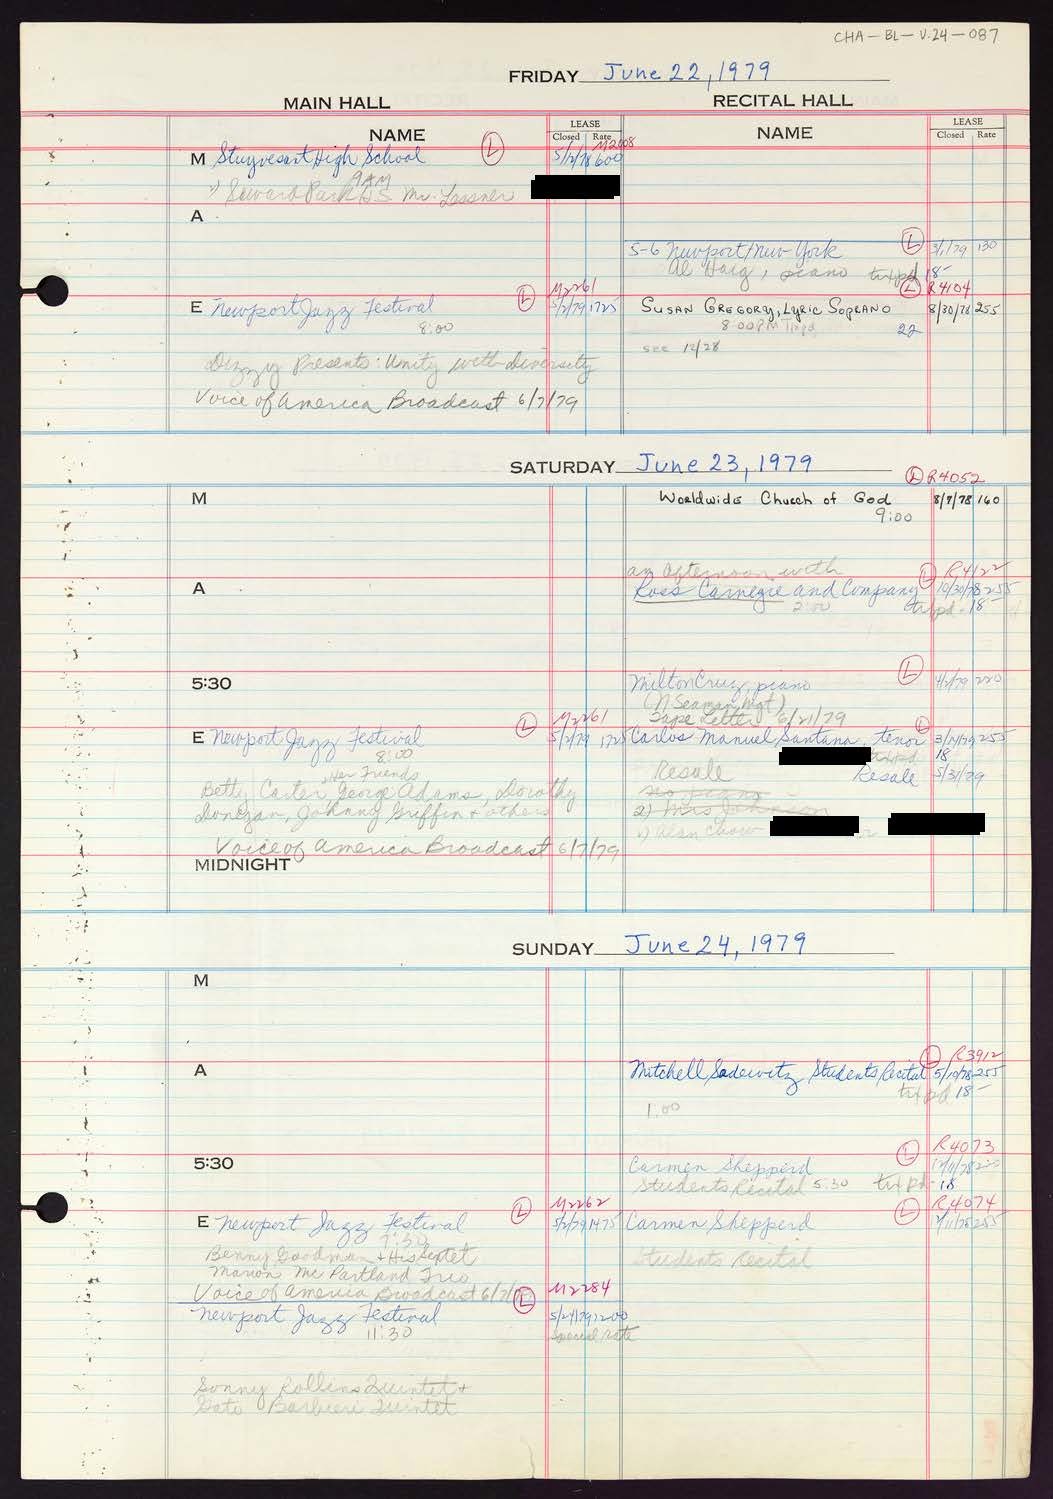 CHA-BL-V.24-087
FRIDAY June 22, 1979
MAIN HALL RECITAL HALL
NAME LEASE Closed Rate NAME LEASE Closed Rate
M2008
M Stuyvesant High School L 5/2/78 600
9 AM
Seward Park H.S. Mr. Lessner
A
5-6 Newport/New York L 3/1/79 130
Al Haig, piano txtpd 18-
M2261 L R4104
E Newport Jazz Festival L 5/2/79 1725 Susan Gregory, Lyric Soprano 8/30/78 255
8:00 8:00 PM 22
see 12/28
Dizzy Presents: Unity with diversity
Voice of America Broadcast 6/7/79
SATURDAY June 23, 1979
L R4052
M Worldwide Church of God 8/7/78 160
9:00
an afternoon with L R4122
A Ross Carnegie and Company 10/30/78 255
2:00 txtpd - 18-
5:30 Milton Cruz, piano L 4/2/79 220
(N Seaman Mgt)
Tape Letter 6/21/79
M2261 L
E Newport Jazz Festival L 5/2/79 1725 Carlos Manuel Santana, tenor 3/14/79 255
8:00 txtpd 18
Her Friends Resale Resale 5/31/79
Betty Carter, George Adams, Dorothy no piano
Donegan, Johnny Griffin + others 2) Mrs Johnson
1) Alan Chow or
Voice of America Broadcast 6/7/79
MIDNIGHT
SUNDAY June 24, 1979
M
L R3912
A Mitchell Sadewitz Students Recital 5/10/78 255
txtpd 18-
1:00
L R4073
5:30 Carmen Shepperd
Students Recital 5:30 txtpd- 18
M2262 L R4074
E Newport Jazz Festival L 5/2/79 1475 Carmen Shepperd 255
7:30
Benny Goodman + His Septet Students Recital
Marion McPartland Trio
Voice of America Broadcast 6/7/ L M2284
Newport Jazz Festival 5/24/79 1200
11:30 Special rate
Sonny Rollins Quintet +
Gato Barbieri Quintet